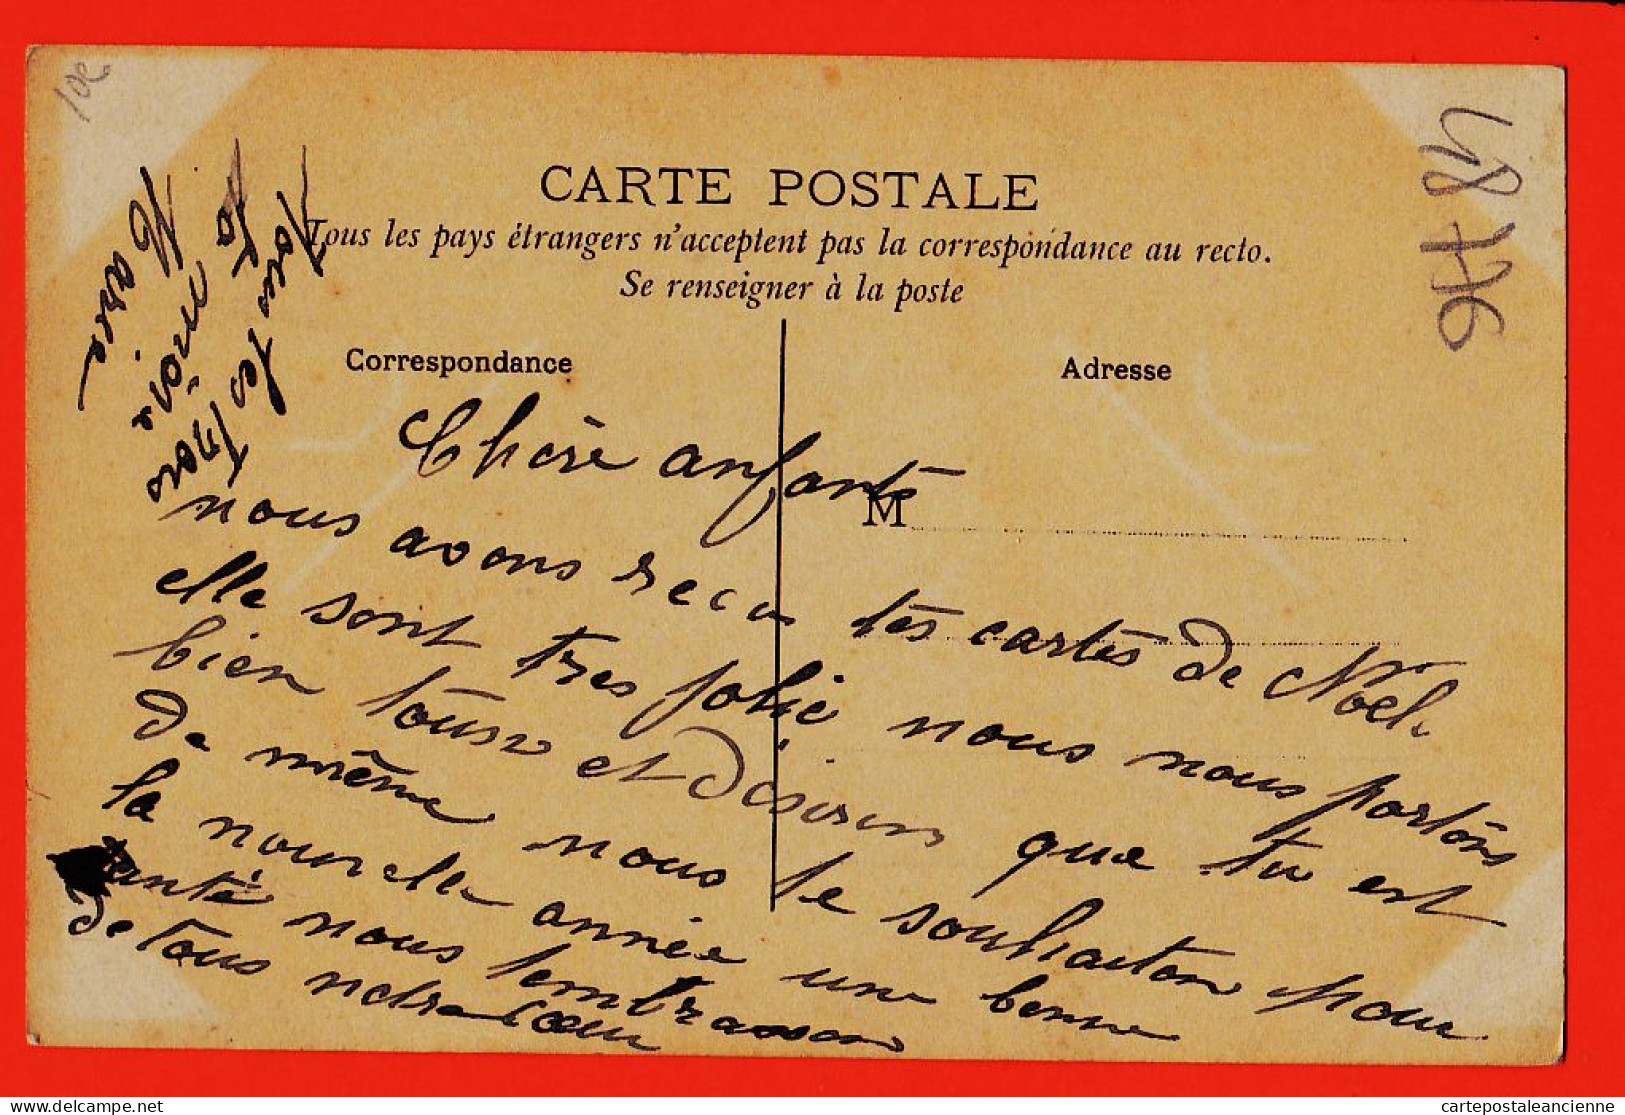 10e
48796
CARTE POSTALE
Tous les pays étrangers n'acceptent pas la correspondance au recto.
Se renseigner à la poste
Correspondance
Adresse
M
Chère anfante
nous avons recu tes cartes de Noël
elle sont tres jolie nous nous portons
bien tous et désirons que tu est
de même nous te souhaiton pour
la nouvelle année une bonne
santé nous tembrasson
de tous notre coeur
Tous les Trois
ta mère
Marie
delcampe.net
cartepostaleancienne